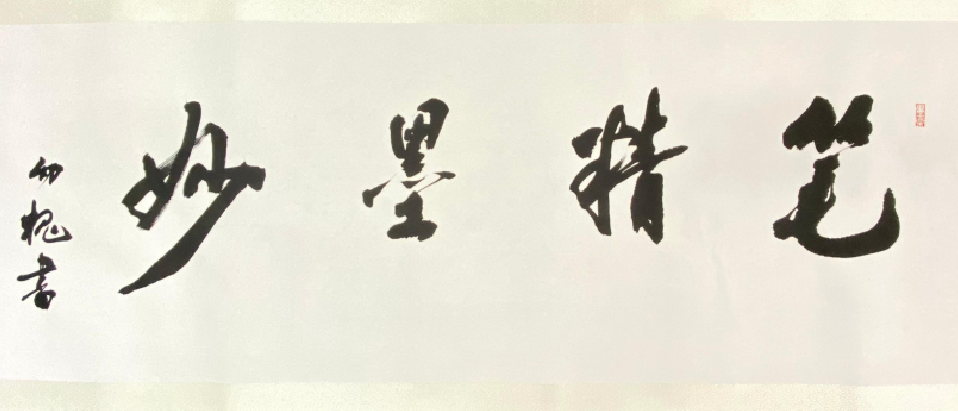 笔精墨妙